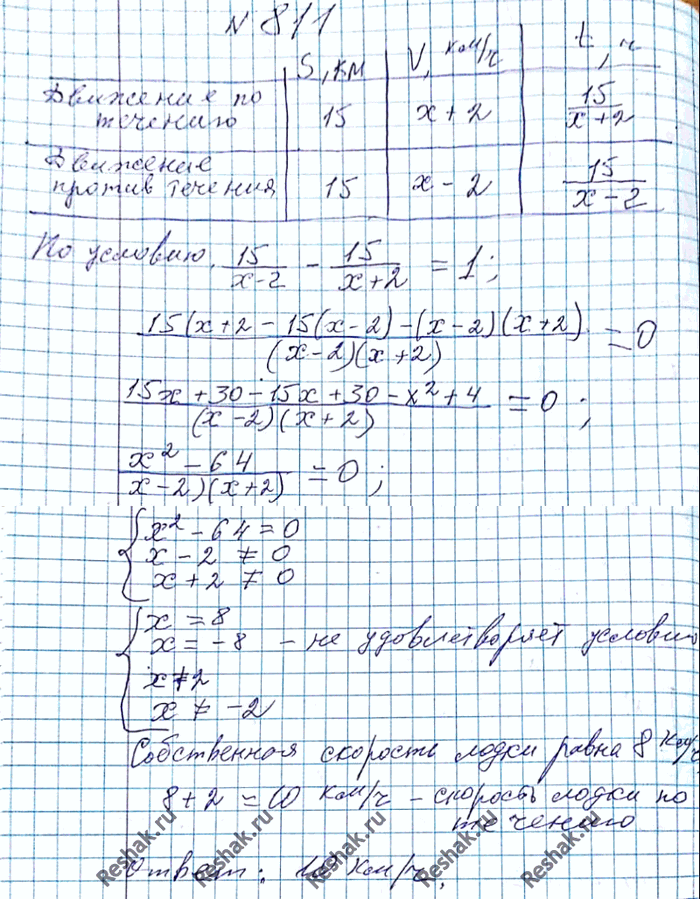 N 811
S, км V, км/ч t, ч
Движение по течению 15 x + 2 15/(x + 2)
Движение против течения 15 x - 2 15/(x - 2)
По условию. 15/(x-2) - 15/(x+2) = 1;
(15(x+2 - 15(x-2) - (x-2)(x+2))/((x-2)(x+2)) = 0
(15x + 30 - 15x + 30 - x² + 4)/((x-2)(x+2)) = 0;
(x² - 64)/(x-2)(x+2) = 0;
{ x² - 64 = 0
x - 2 ≠ 0
x + 2 ≠ 0
{ x = 8
x = -8 - не удовлетворяет условию
x ≠ 2
x ≠ -2
Собственная скорость лодки равна 8 км/ч
8 + 2 = 10 км/ч - скорость лодки по
течению
Ответ: 10 км/ч.
Reshak.ru Reshak.ru Reshak.ru Reshak.ru Reshak.ru